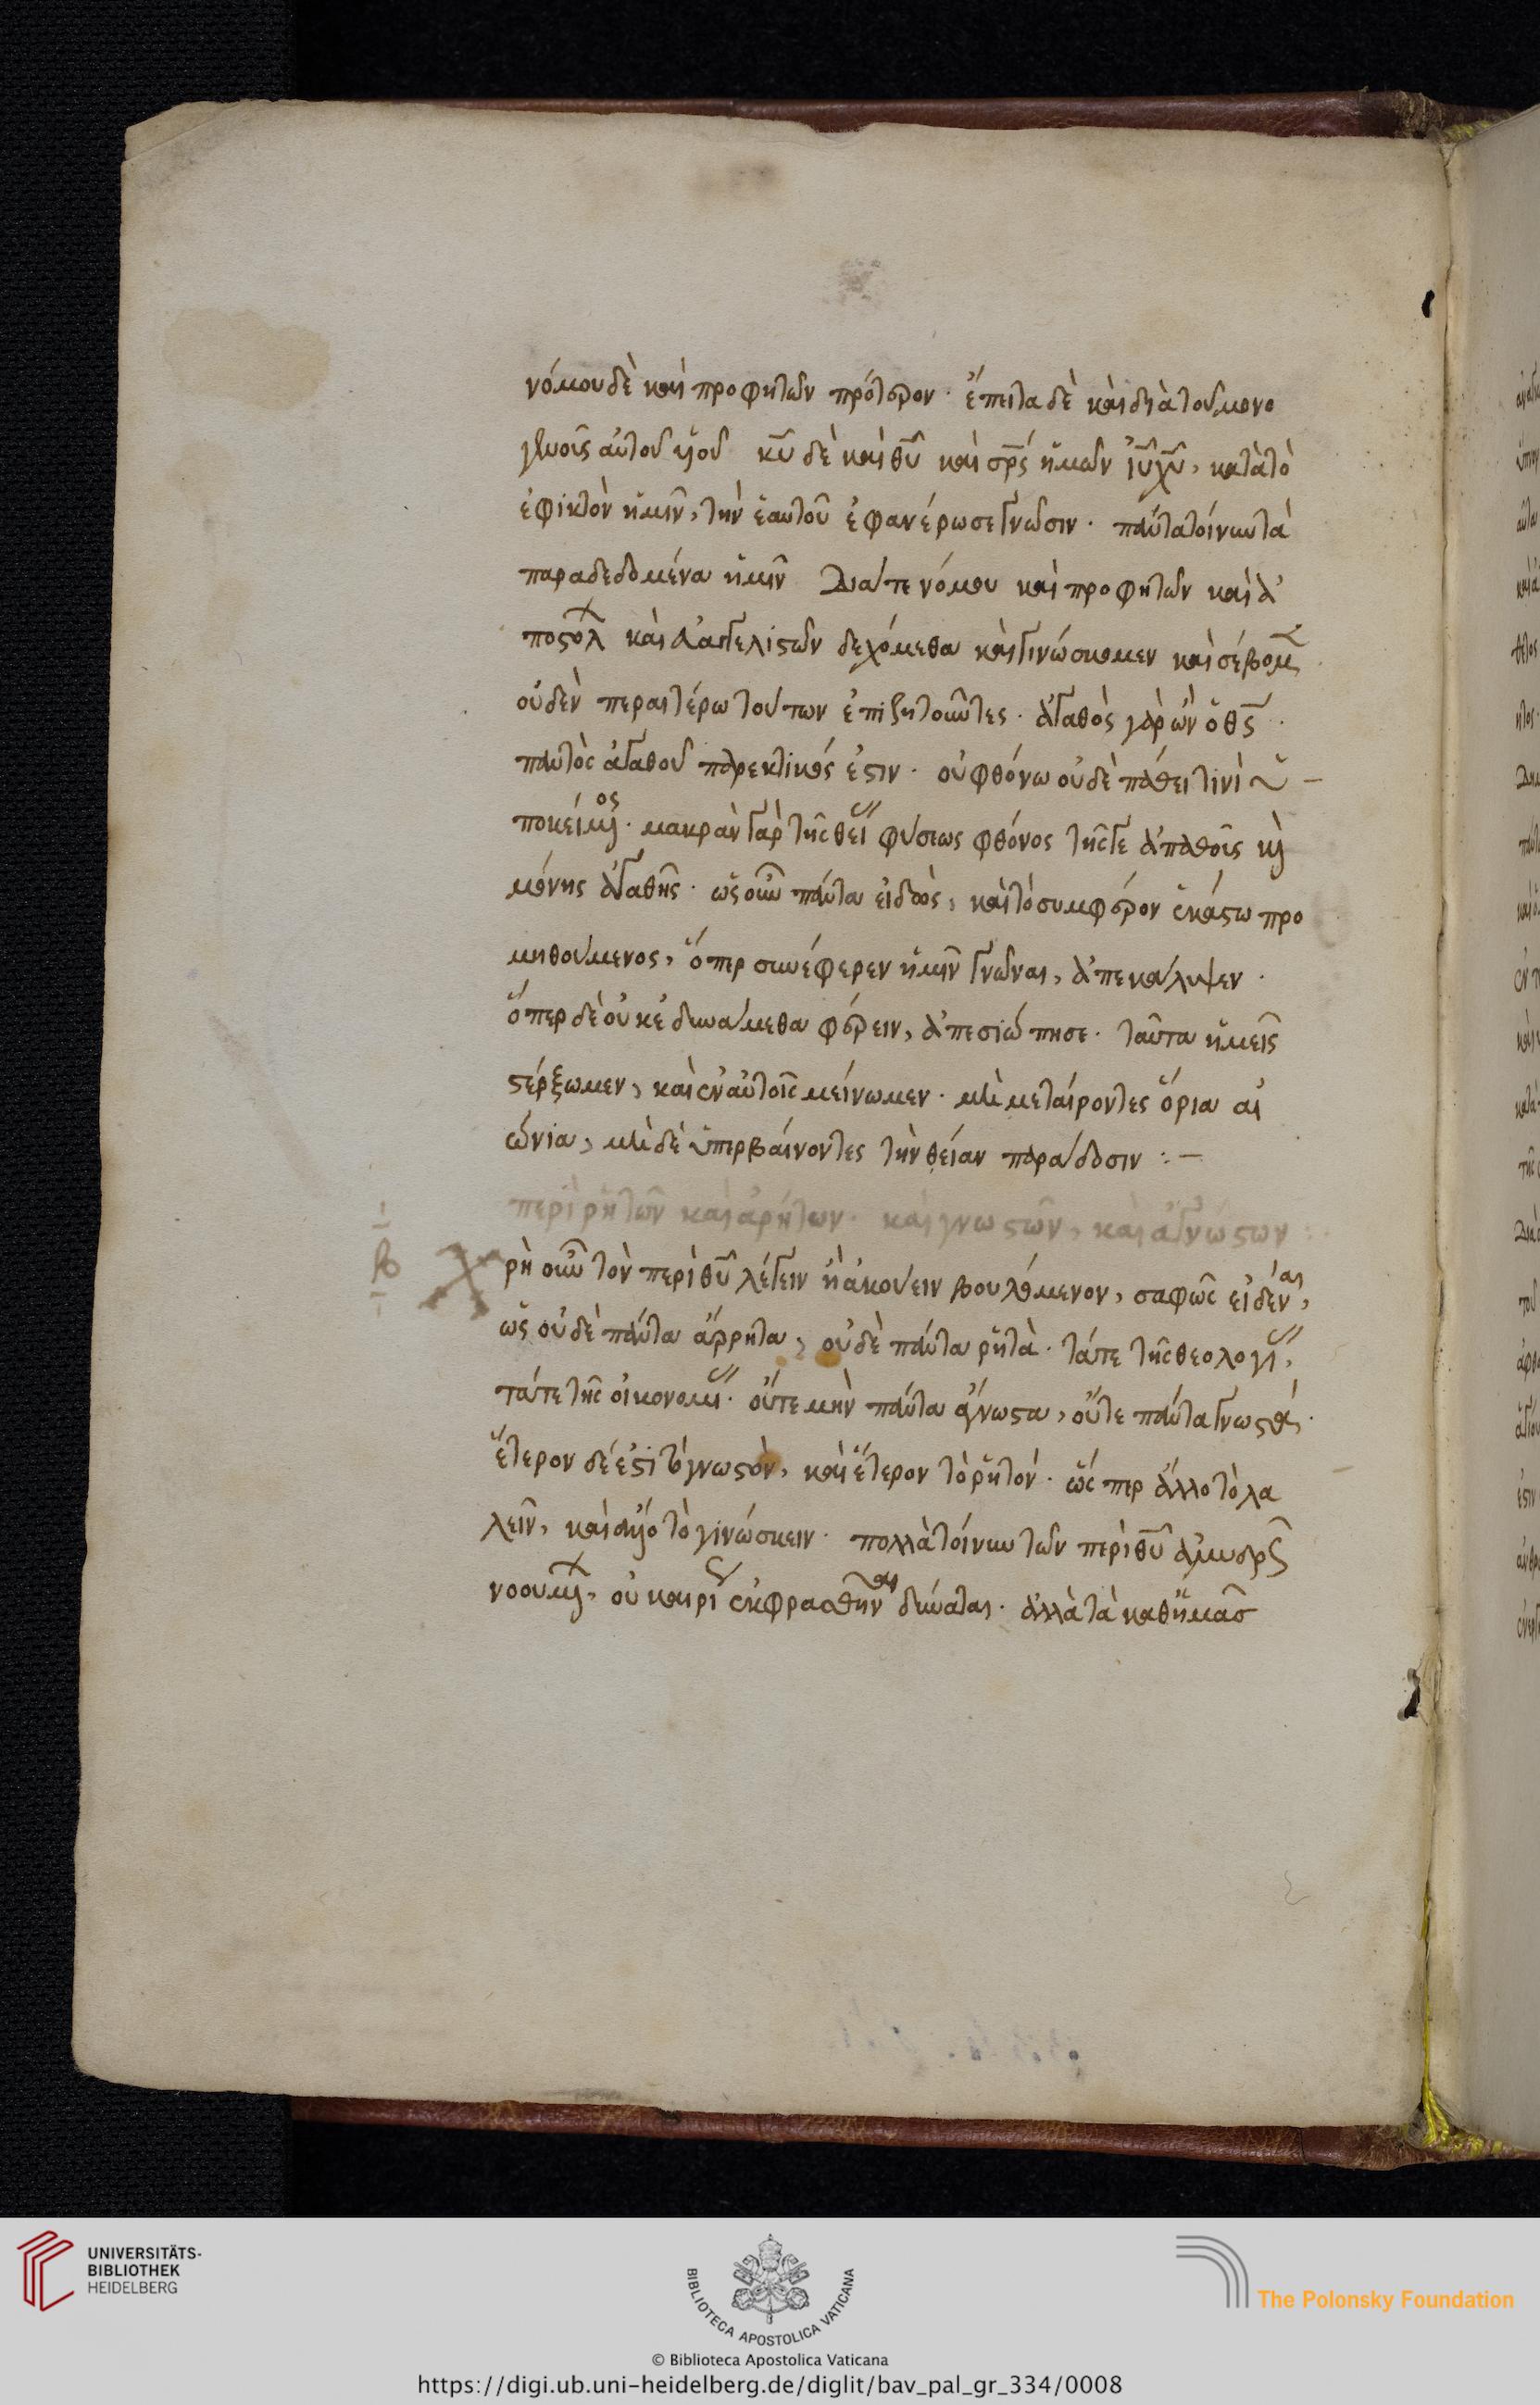 νόμου δὲ καὶ προφητῶν πρότερον· ἔπειτα δὲ καὶ διὰ τοῦ μονο
γενοῦς αὐτοῦ υἱοῦ κυ δὲ καὶ θυ καὶ σρς ἡμῶν ιυ χυ, κατὰ τὸ
ἐφικτὸν ἡμῖν, τὴν ἑαυτοῦ ἐφανέρωσε γνῶσιν· πάντα τοίνυν τὰ
παραδεδομένα ἡμῖν διά τε νόμου καὶ προφητῶν καὶ ἀ
ποστολ καὶ εὐαγγελιστῶν δεχόμεθα καὶ γινώσκομεν καὶ σέβομ
οὐδὲν περαιτέρω τούτων ἐπιζητοῦντες· ἀγαθὸς γὰρ ὢν ὁ θς·
παντὸς ἀγαθοῦ παρεκτικός ἐστιν· οὐ φθόνω οὐδὲ πάθει τινὶ ὑ
ποκείμενος· μακρὰν γὰρ τῆς θεί φύσεως φθόνος τῆς γε ἀπαθοῦς κ
μόνης ἀγαθῆς· ὡς οὖν πάντα εἰδὼς, καὶ τὸ συμφέρον ἑκάστω προ
μηθούμενος, ὅπερ συνέφερεν ἡμῖν γνῶναι, ἀπεκάλυψεν·
ὅπερ δὲ οὐκ ἐδυνάμεθα φέρειν, ἀπεσιώπησε· ταῦτα ἡμεῖς
στέρξωμεν, καὶ ἐν αὐτοῖς μείνωμεν· μὴ μεταίροντες ὅρια αἰ
ώνια, μὴ δὲ ὑπερβαίνοντες τὴν θείαν παράδοσιν :—
περὶ ῥητῶν καὶ ἀρήτων· καὶ γνωστῶν, καὶ ἀγνώστων :
β Χρὴ οὖν τὸν περὶ θυ λέγειν ἢ ἀκούειν βουλόμενον, σαφῶς εἰδέναι,
ὡς οὐδὲ πάντα ἄρρητα, οὐδὲ πάντα ῥητὰ· τά τε τῆς θεολογί,
τά τε τῆς οἰκονομί· οὔτε μὴν πάντα ἄγνωστα, οὔτε πάντα γνωστά·
ἕτερον δέ ἐστι τὸ γνωστὸν, καὶ ἕτερον τὸ ῥητόν· ὥς περ ἄλλο τὸ λα
λεῖν, καὶ ἄλλο τὸ γινώσκειν· πολλὰ τοίνυν τῶν περὶ θυ ἀμυδρς
νοουμ, οὐ καιρί ἐκφρασθῆναι δύναται· ἀλλὰ τὰ καθ ἡμᾶς
UNIVERSITÄTS-
BIBLIOTHEK
HEIDELBERG
BIBLIOTECA APOSTOLICA VATICANA
The Polonsky Foundation
© Biblioteca Apostolica Vaticana
https://digi.ub.uni-heidelberg.de/diglit/bav_pal_gr_334/0008